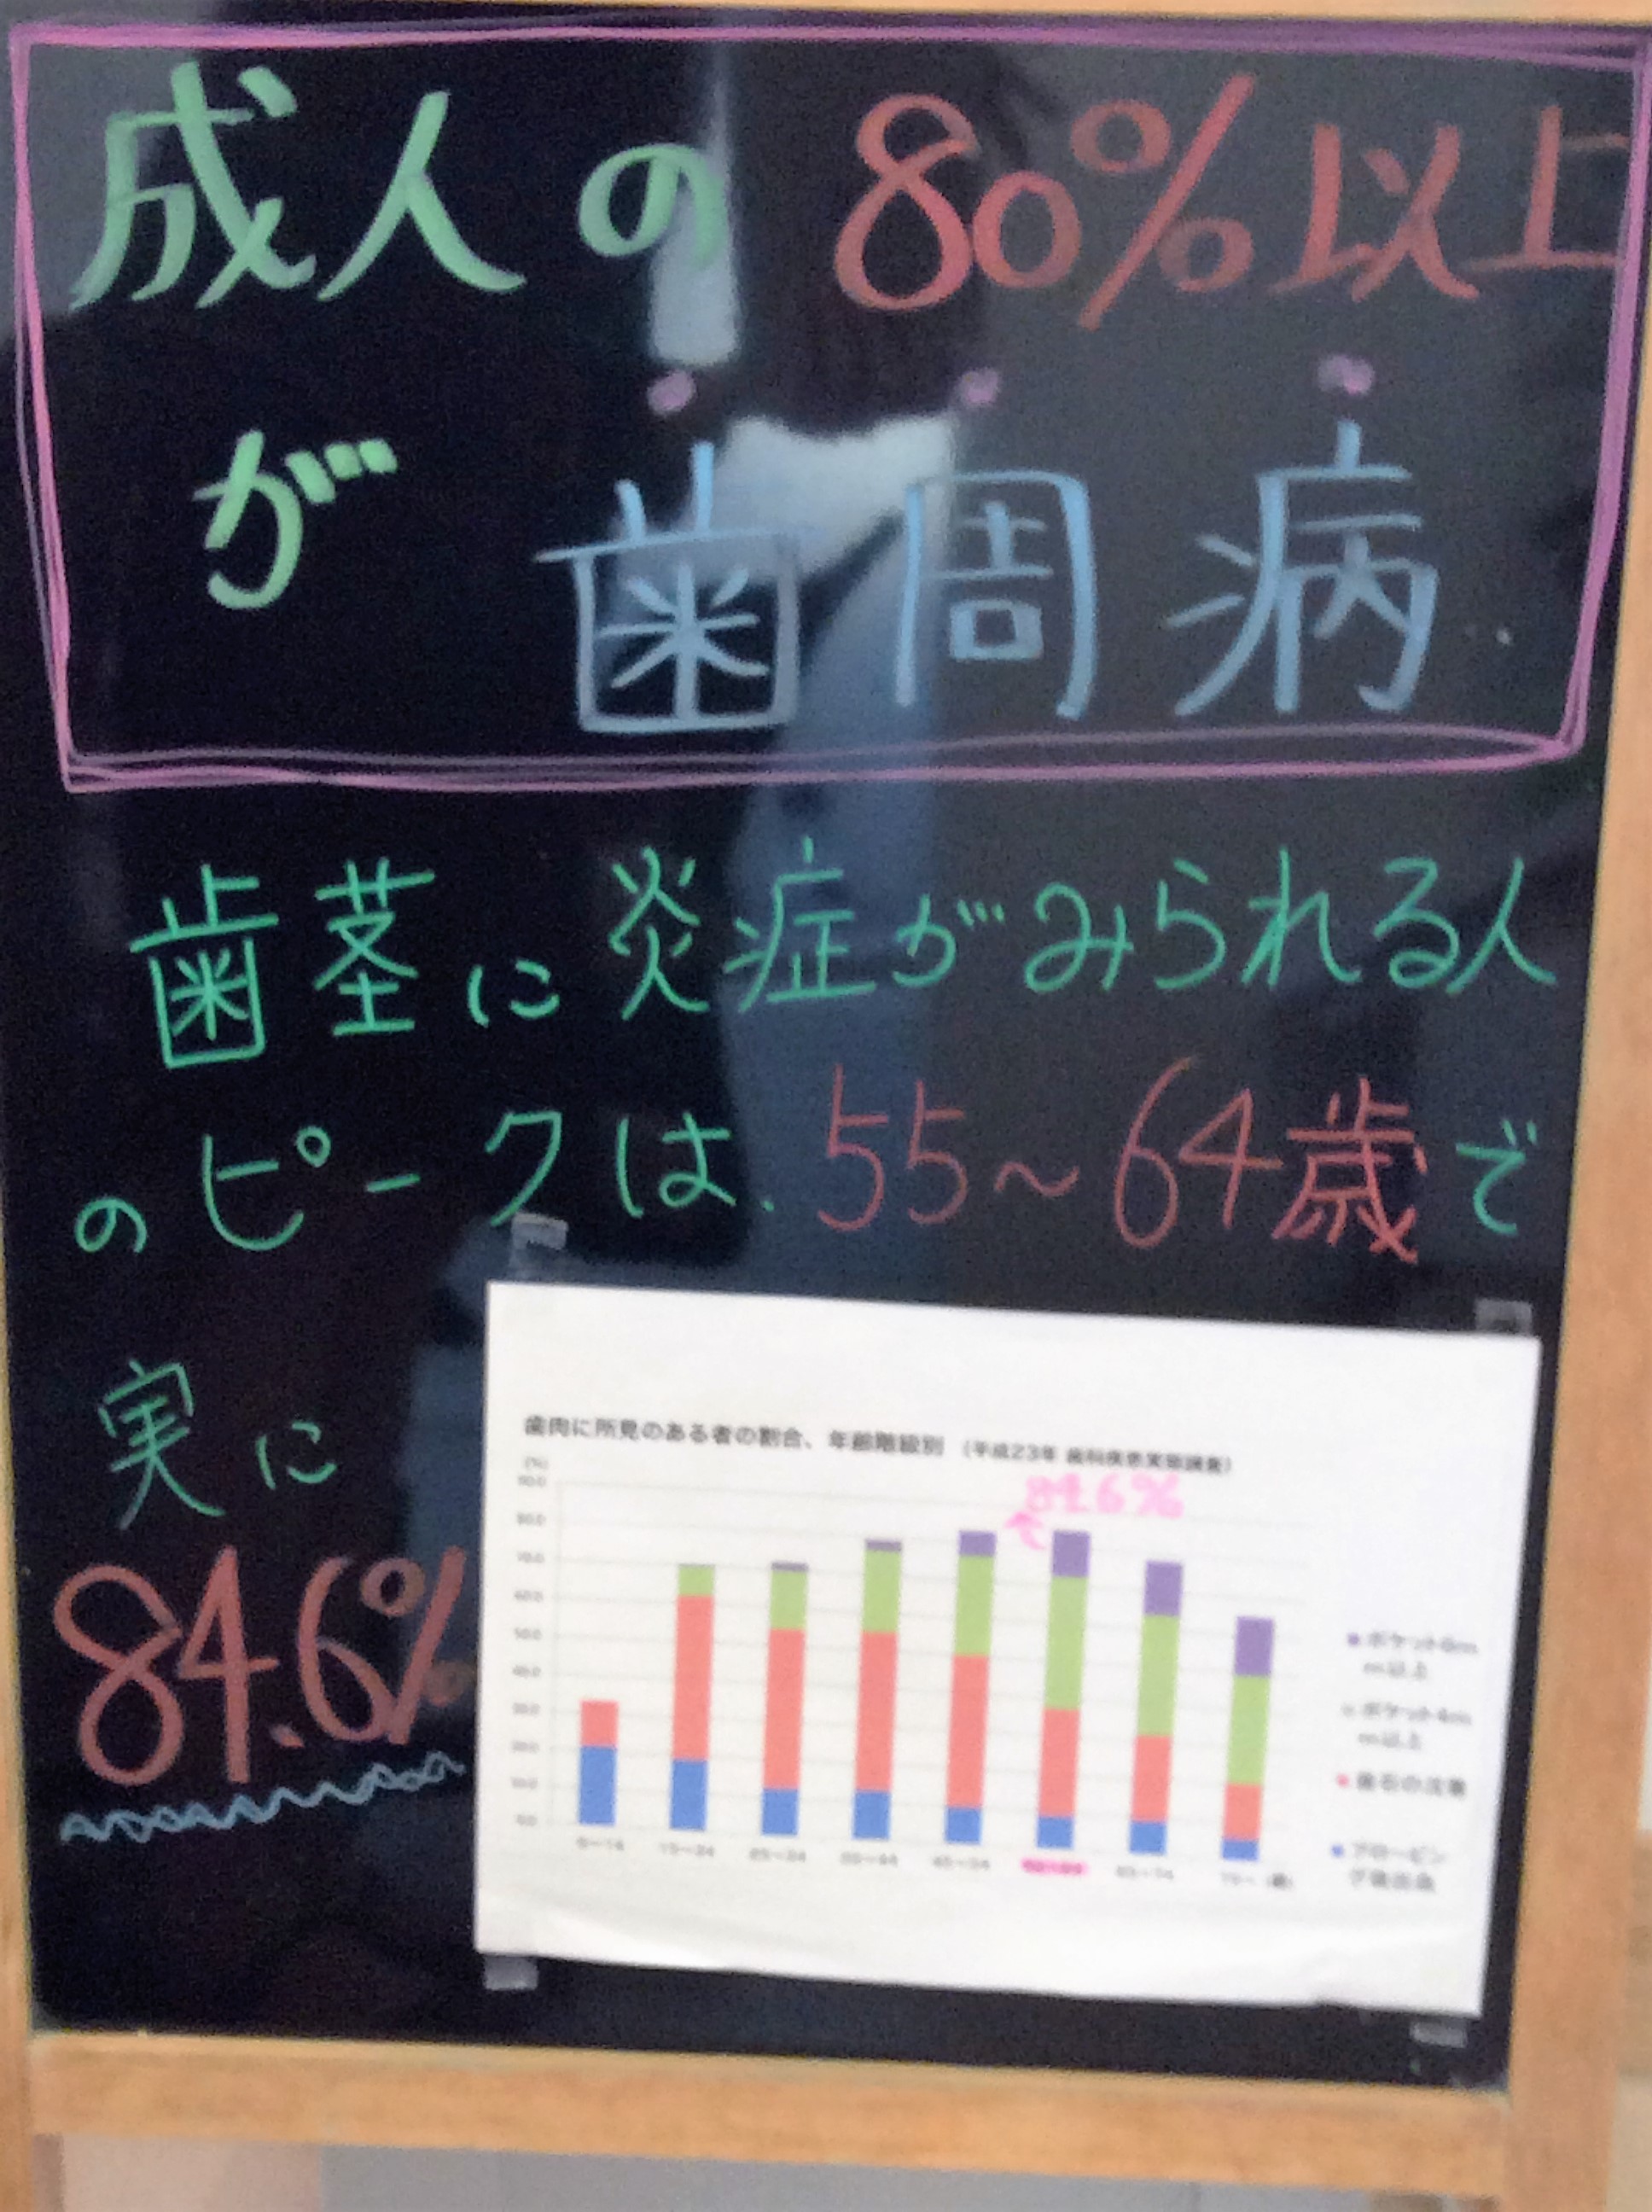 成人の80%以上
が歯周病
歯茎に炎症がみられる人
のピークは、55~64歳で
実に
84.6%
歯肉に所見のある者の割合、年齢階級別 (平成23年 歯科疾患実態調査)
(%)
84.6%
90.0
80.0
70.0
60.0
50.0
40.0
30.0
20.0
10.0
0.0
5~14 15~24 25~34 35~44 45~54 55~64 65~74 75~ (歳)
ポケット6m
m以上
ポケット4m
m以上
歯石の沈着
プロービン
グ後出血